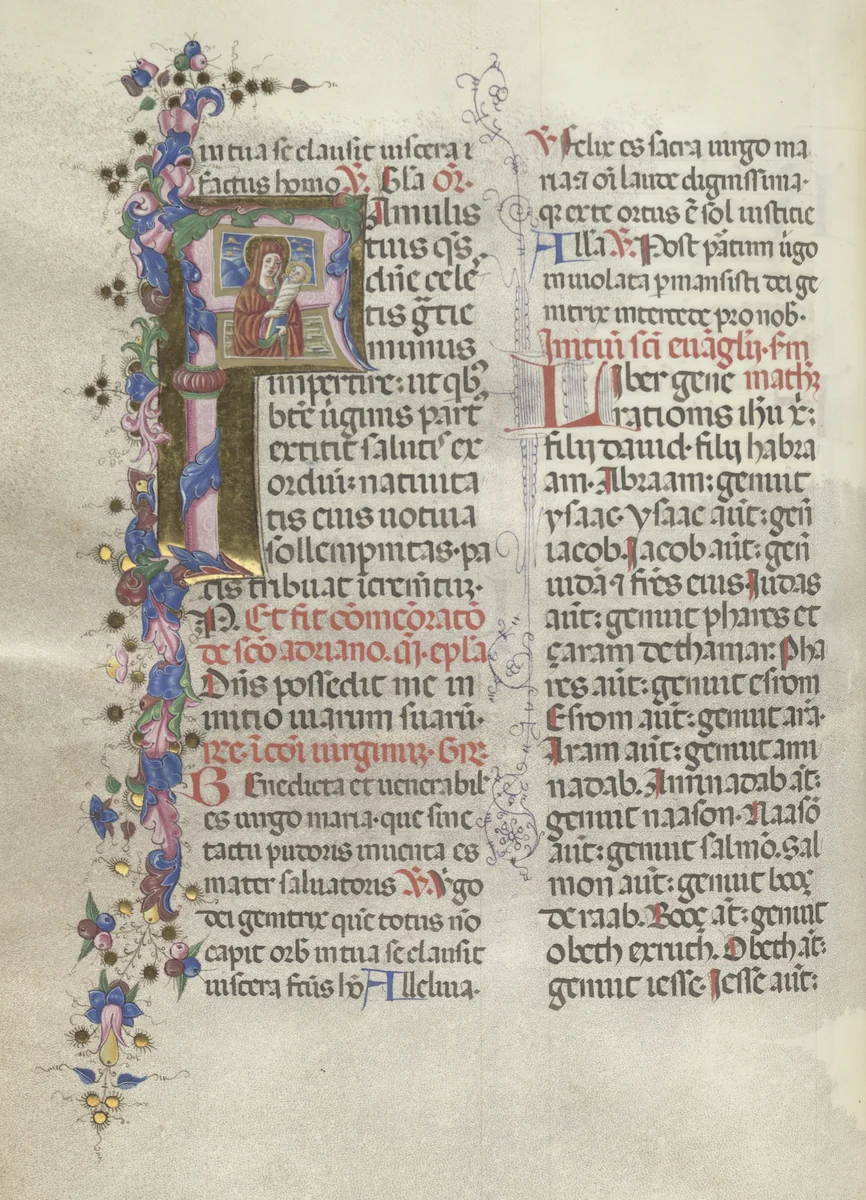 in tua se clausit uiscera ı
factus homo. V. Gl̃a or̃.
Famulis
tuis q̃s
dñe cele
tis gr̃tie
munus
impertire: ut qb
bt̃e uirginis part
extitit salutis ex
ordiũ: natiuita
tis eius uotiua
sollempnitas. pa
cis tribuat ĩcrem̃tuz.
P. Et fit cõmeorato
de sc̃o adriano. epl̃a
Dñs possedit me in
initio uiarum suarũ.
re. ĩ cõi uirginuz. Gr̃.
BEnedicta et uenerabil
es uirgo maria. que sine
tactu pudoris inuenta es
mater saluatoris V. Vgo
dei genitrix quẽ totus nõ
capit orb in tua se clausit
uiscera fc̃us hõ Alleluia.
V. Felix es sacra uirgo ma
ria ⁊ oĩ laude dignissima.
qz ex te ortus ẽ sol iustitie
Alla V. Post partum ugo
inuiolata pmansisti dei ge
nitrix intercede pro nob.
Initiũ sc̃i euãglij. sm
Liber gene math
rationis ihũ x̃:
filij dauid. filij habra
am. Abraam: genuit
ysaac. ysaac aũt: geñ
iacob. Iacob aũt: geñ
iudã ⁊ fr̃es eius. Iudas
aũt: genuit phares et
çaram de thamar. Pha
res aũt: genuit esrom
Esrom aũt: genuit arã.
Aram aũt: genuit ami
nadab. Aminadab at̃:
genuit naason. Naasõ
aũt: genuit salmõ. Sal
mon aũt: genuit booç
de raab. Booç at̃: genuit
obeth ex ruth. Obeth at̃:
genuit iesse. Iesse aũt: